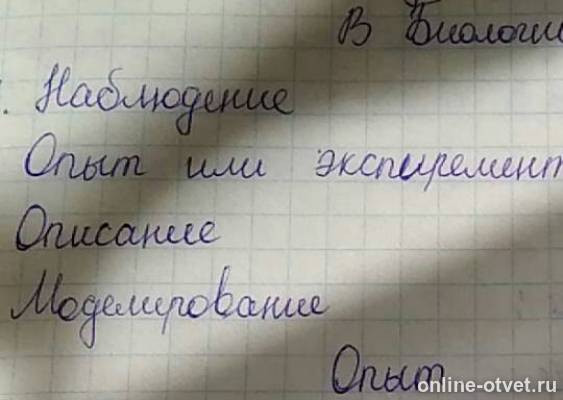 В Биологи
. Наблюдение
Опыт или экспиремент
Описание
Моделирование
Опыт
online-otvet.ru